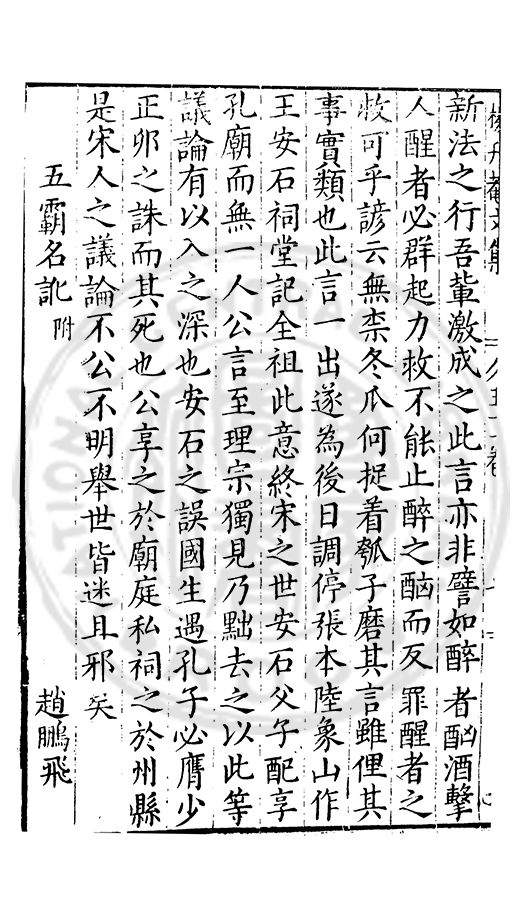 新法之行吾輩激成之此言亦非譬如醉者酗酒擊
人醒者必群起力救不能止醉之酗而反罪醒者之
救可乎諺云無柰冬瓜何捉着瓠子磨其言雖俚其
事實類也此言一出遂為後日調停張本陸象山作
王安石祠堂記全祖此意終宋之世安石父子配享
孔廟而無一人公言至理宗獨見乃黜去之以此等
議論有以入之深也安石之誤國生遇孔子必膺少
正卯之誅而其死也公享之於廟庭私祠之於州縣
是宋人之議論不公不明舉世皆迷且邪矣
五霸名訛附 趙鵬飛